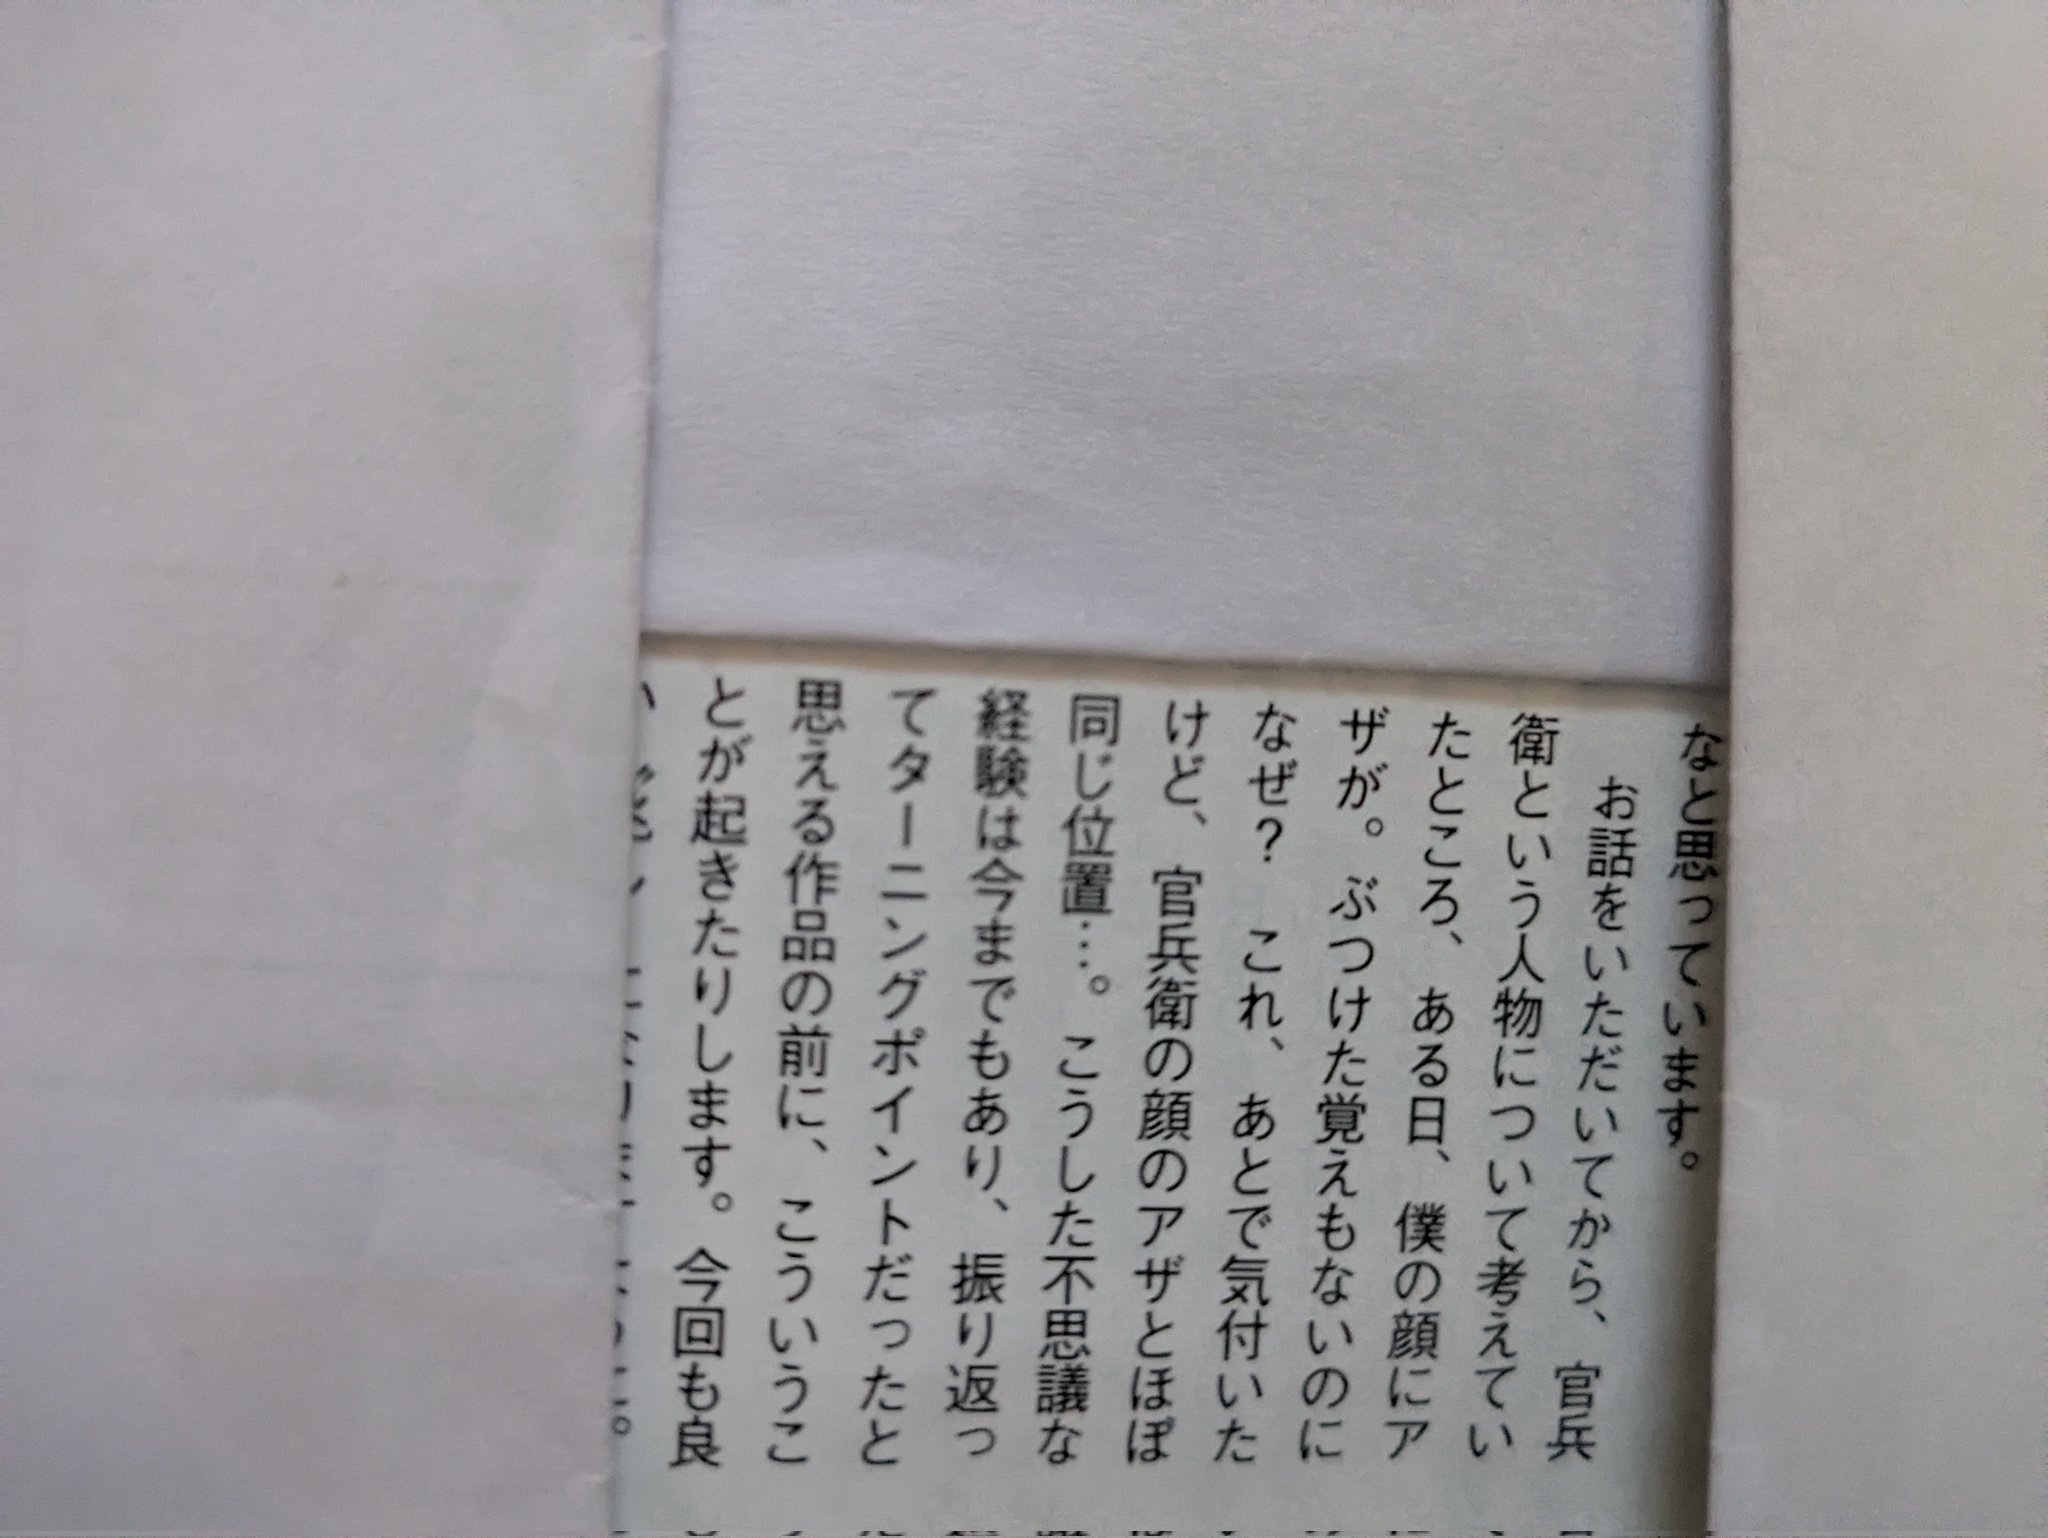 なと思っています。
お話をいただいてから、官兵
衛という人物について考えてい
たところ、ある日、僕の顔にア
ザが。ぶつけた覚えもないのに
なぜ？　これ、あとで気付いた
けど、官兵衛の顔のアザとほぼ
同じ位置…。こうした不思議な
経験は今までもあり、振り返っ
てターニングポイントだったと
思える作品の前に、こういうこ
とが起きたりします。今回も良